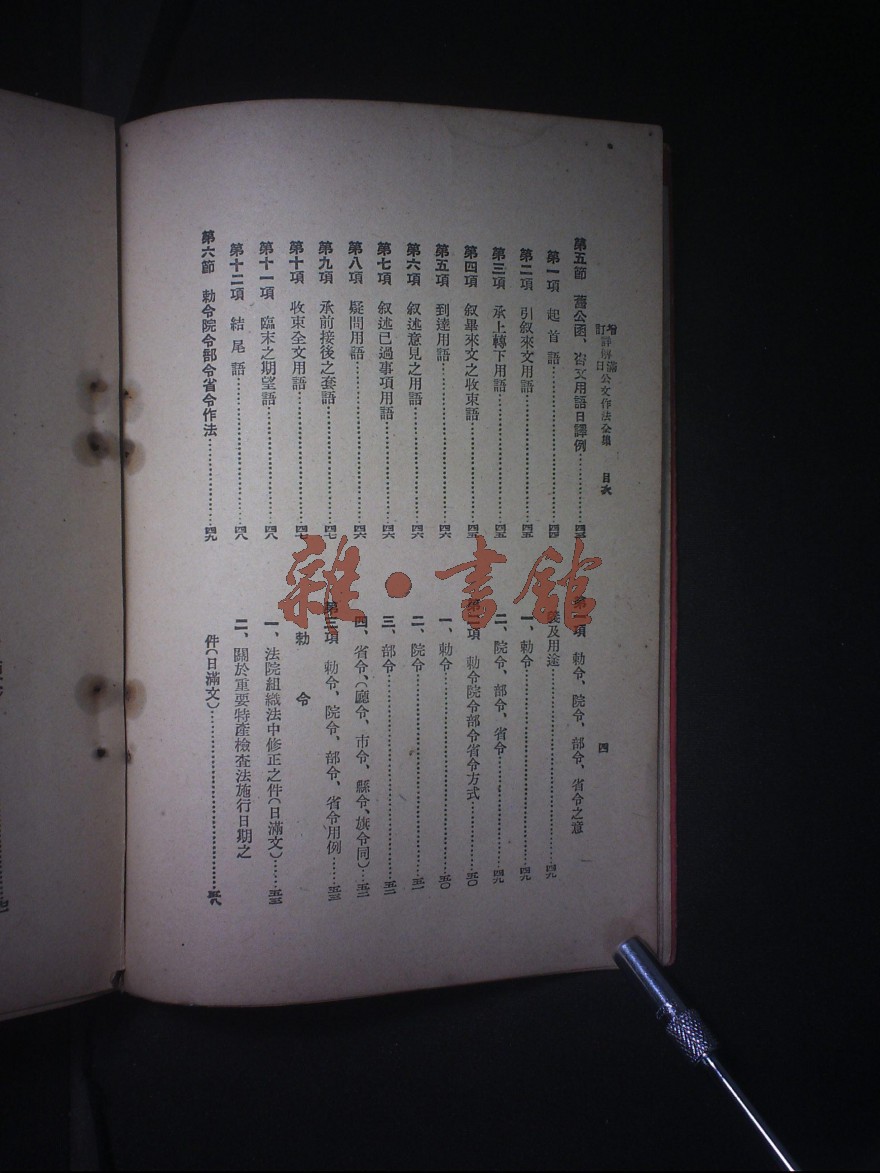 增訂詳解滿日公文作法全集 目次
四
第五節 舊公函、咨文用語日譯例……四三
第一項 起首語……四四
第二項 引叙來文用語……四五
第三項 承上轉下用語……四五
第四項 叙畢來文之收束語……四五
第五項 到達用語……四六
第六項 叙述意見之用語……四六
第七項 叙述已過事項用語……四六
第八項 疑問用語……四六
第九項 承前接後之套語……四七
第十項 收束全文用語……四七
第十一項 臨末之期望語……四八
第十二項 結尾語……四八
第六節 勅令院令部令省令作法……四九
第一項 勅令、院令、部令、省令之意
義及用途……四九
一、勅令……四九
二、院令、部令、省令……四九
第二項 勅令院令部令省令方式……五〇
一、勅令……五〇
二、院令……五一
三、部令……五二
四、省令、(廳令、市令、縣令、旗令同)……五二
第三項 勅令、院令、部令、省令用例……五三
勅令
一、法院組織法中修正之件(日滿文)……五三
二、關於重要特產檢查法施行日期之
件(日滿文)……五八
雜·書館